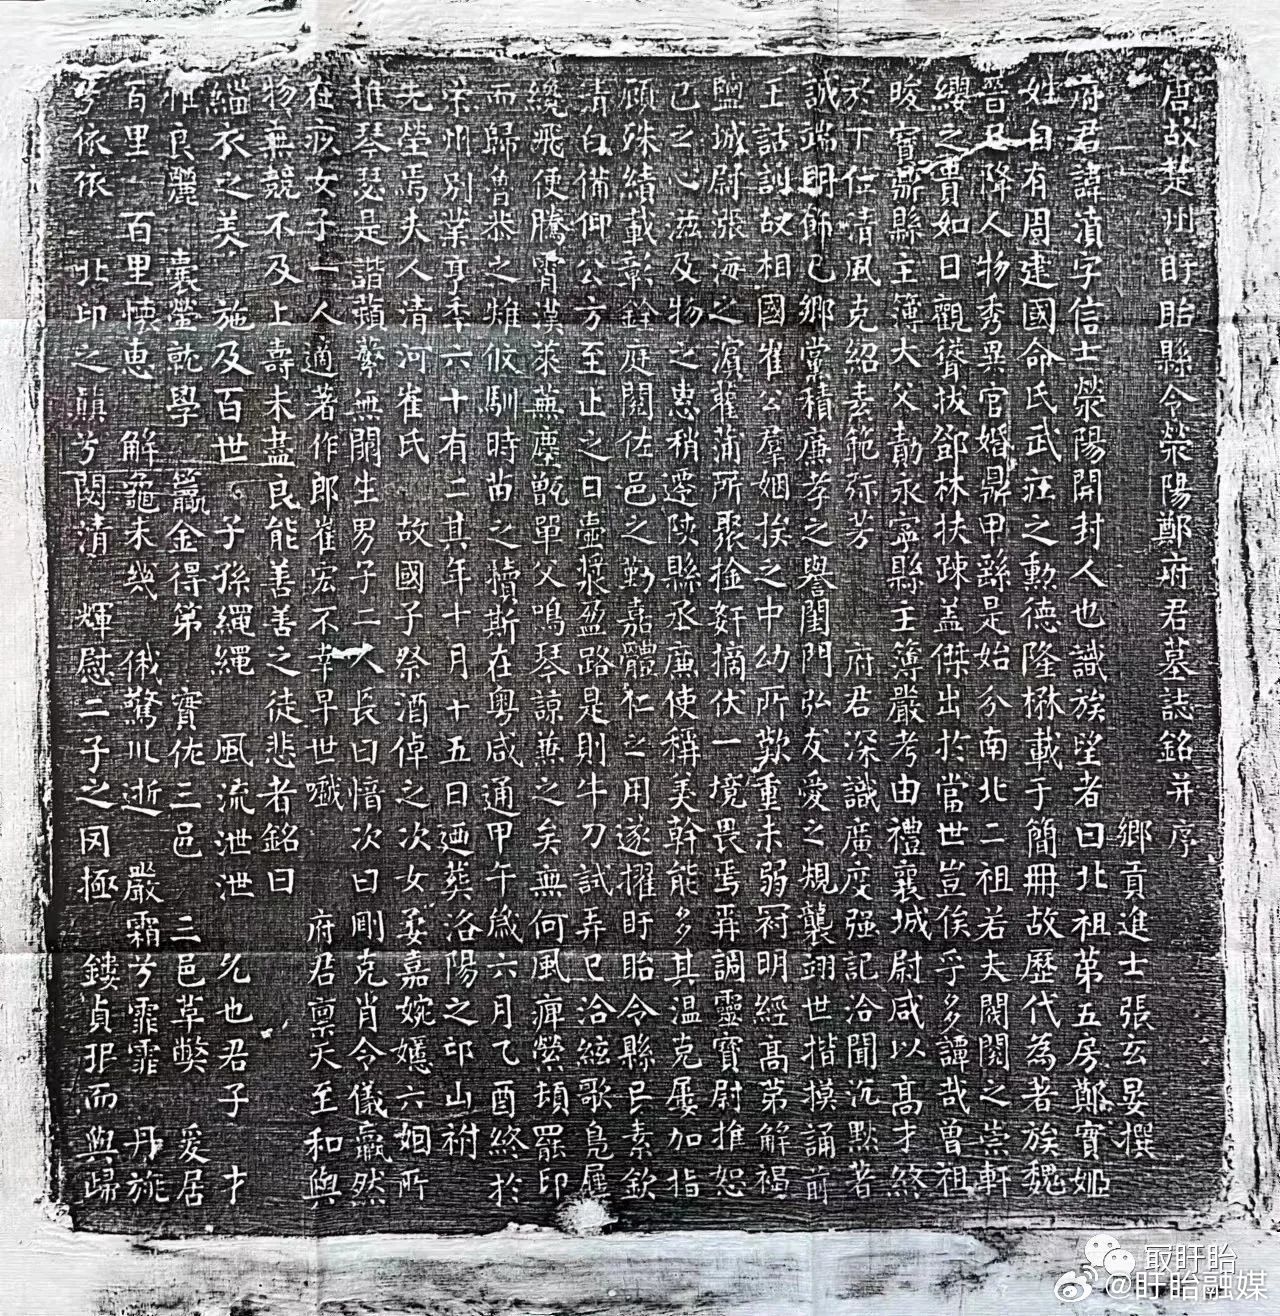 唐故楚州盱眙縣令滎陽鄭府君墓誌銘并序
鄉貢進士張玄晏撰
府君諱濆字信士滎陽開封人也識族望者曰北祖第五房鄭實姬
姓自有周建國命氏武莊之勳德隆楙載于簡冊故歷代為著族魏
晉已降人物秀異官婚鼎甲繇是始分南北二祖若夫閥閱之崇軒
纓之貴如日觀聳拔鄧林扶踈盖傑出於當世豈俟乎多譚哉曾祖
晙寶鼎縣主簿大父勣永寧縣主簿嚴考由禮襄城尉咸以高才終
於下仕清風克紹素範弥芳 府君深識廣度强記洽聞沉默著
誠端明飾己鄉黨積廉孝之譽閨門弘友愛之規襲翊世揩摸誦前
王詁訓故相國崔公羣姻挨之中幼所歎重未弱冠明經高第解褐
鹽城尉漲海之濵雚蒲所聚擒姧摘伏一境畏焉再調靈寶尉推恕
己之心滋及物之惠稍遷陝縣丞廉使稱美幹能多其温克屢加指
顧殊績載彰銓庭閱佐邑之勤嘉體仁之用遂擢盱眙令縣民素欽
清白偹仰公方至止之日壷漿盈路是則牛刀試弄已洽絃歌鳧履
繞飛便騰霄漢萊蕪塵甑單父鳴琴諒兼之矣無何風痺縈頓罷印
而歸魯恭之雉攸馴時苗之犢斯在粵咸通甲午歲六月乙酉終於
宋州別業享年六十有二其年十月十五日迺葬洛陽之邙山祔
先塋焉夫人清河崔氏 故國子祭酒倬之次女柔嘉婉嬺六姻所
推琴瑟是諧蘋蘩無闕生男子二人長曰愔次曰剛克肖令儀羸然
在疚女子一人適著作郎崔宏不幸早世嚱 府君禀天至和與
物無競不及上壽未盡良能善善之徒悲者銘曰
緇衣之美 施及百世 子孫繩繩 風流泄泄 允也君子 才
惟良麗 囊螢就學 籯金得第 實佐三邑 二邑草獘 爰居
百里 百里懷惠 解龜未幾 俄驚川逝 嚴霜兮霏霏 丹旐
兮依依 北邙之巔兮閟清 輝慰二子之罔極 鏤貞珉而與歸
最盱眙
@盱眙融媒